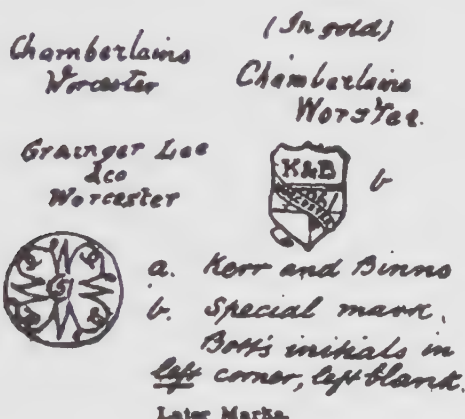 Chamberlains
Worcester
(In gold)
Chamberlains
Worster.
Grainger Lee
&co
Worcester
K&B
WORCESTER
b
a. Kerr and Binns
b. Special mark,
Bott's initials in
left corner, left blank.
Later Marks